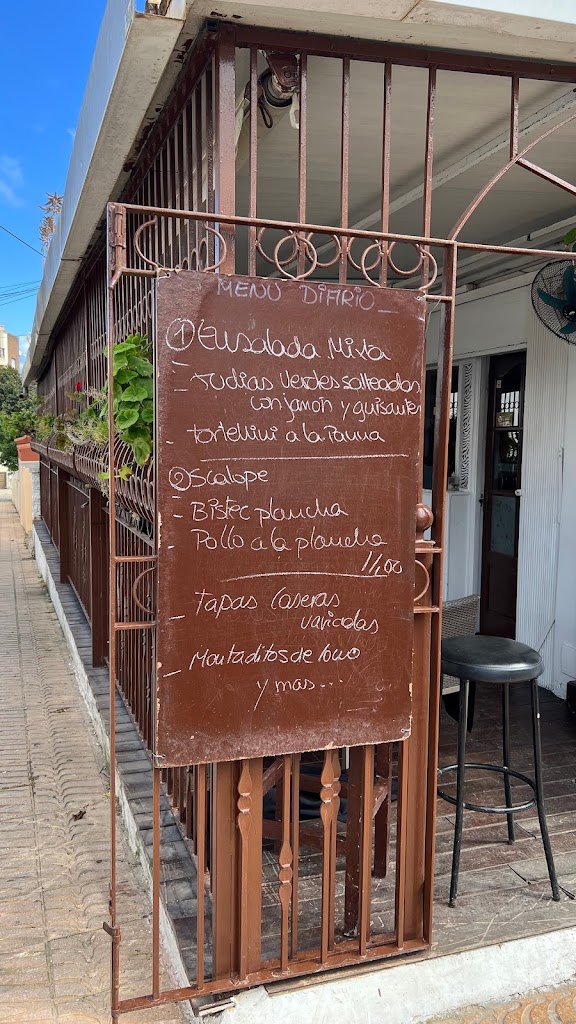 MENU DIARIO
① Ensalada Mixta
- Judias verdes salteadas
con jamon y guisantes
- tortellini a la Panna
② Scalope
- Bistec plancha
- Pollo a la plancha
11,00
- tapas Caseras
variadas
- Montaditos de lomo
y mas...